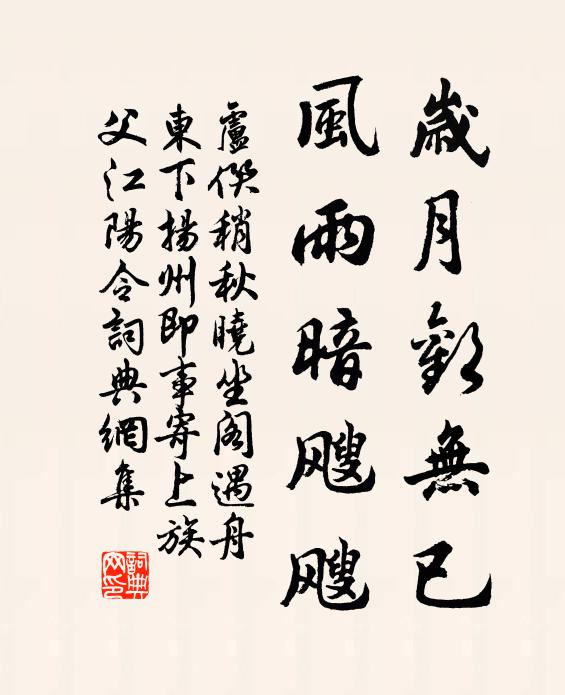 歲月歡無已
風雨暗颼颼
盧僎稍秋曉坐閣遇舟
東下揚州即事寄上族
父江陽令詞典網集
詞典
网印